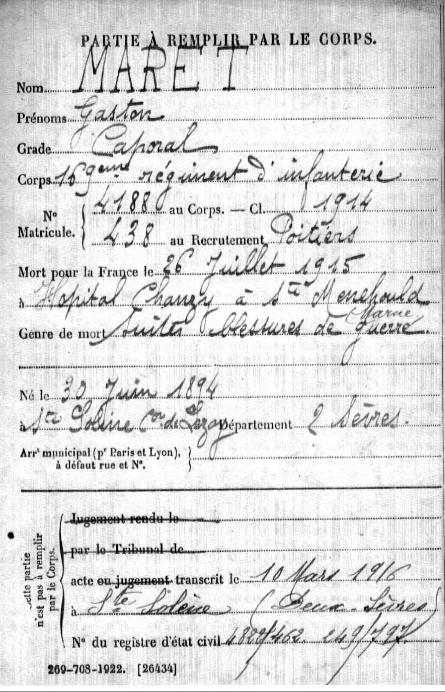 PARTIE À REMPLIR PAR LE CORPS.
Nom MARET
Prénoms Gaston
Grade Caporal
Corps régiment d'infanterie
N° Matricule. { 4188 au Corps. — Cl. 1914
438 au Recrutement Poitiers
Mort pour la France le 26 Juillet 1915
à Hopital Chanzy à Ste Menehould
Marne
Genre de mort Suites blessures de guerre
Né le 30 Juin 1894
à Ste Solène Con de Lezay Département 2 Sèvres.
Arrt municipal (pr Paris et Lyon), }
à défaut rue et N°.
Cette partie n'est pas à remplir par le Corps.
Jugement rendu le
par le Tribunal de
acte ou jugement transcrit le 10 Mars 1916
à Ste Solène (Deux-Sèvres)
N° du registre d'état civil
269-708-1922. [26434]